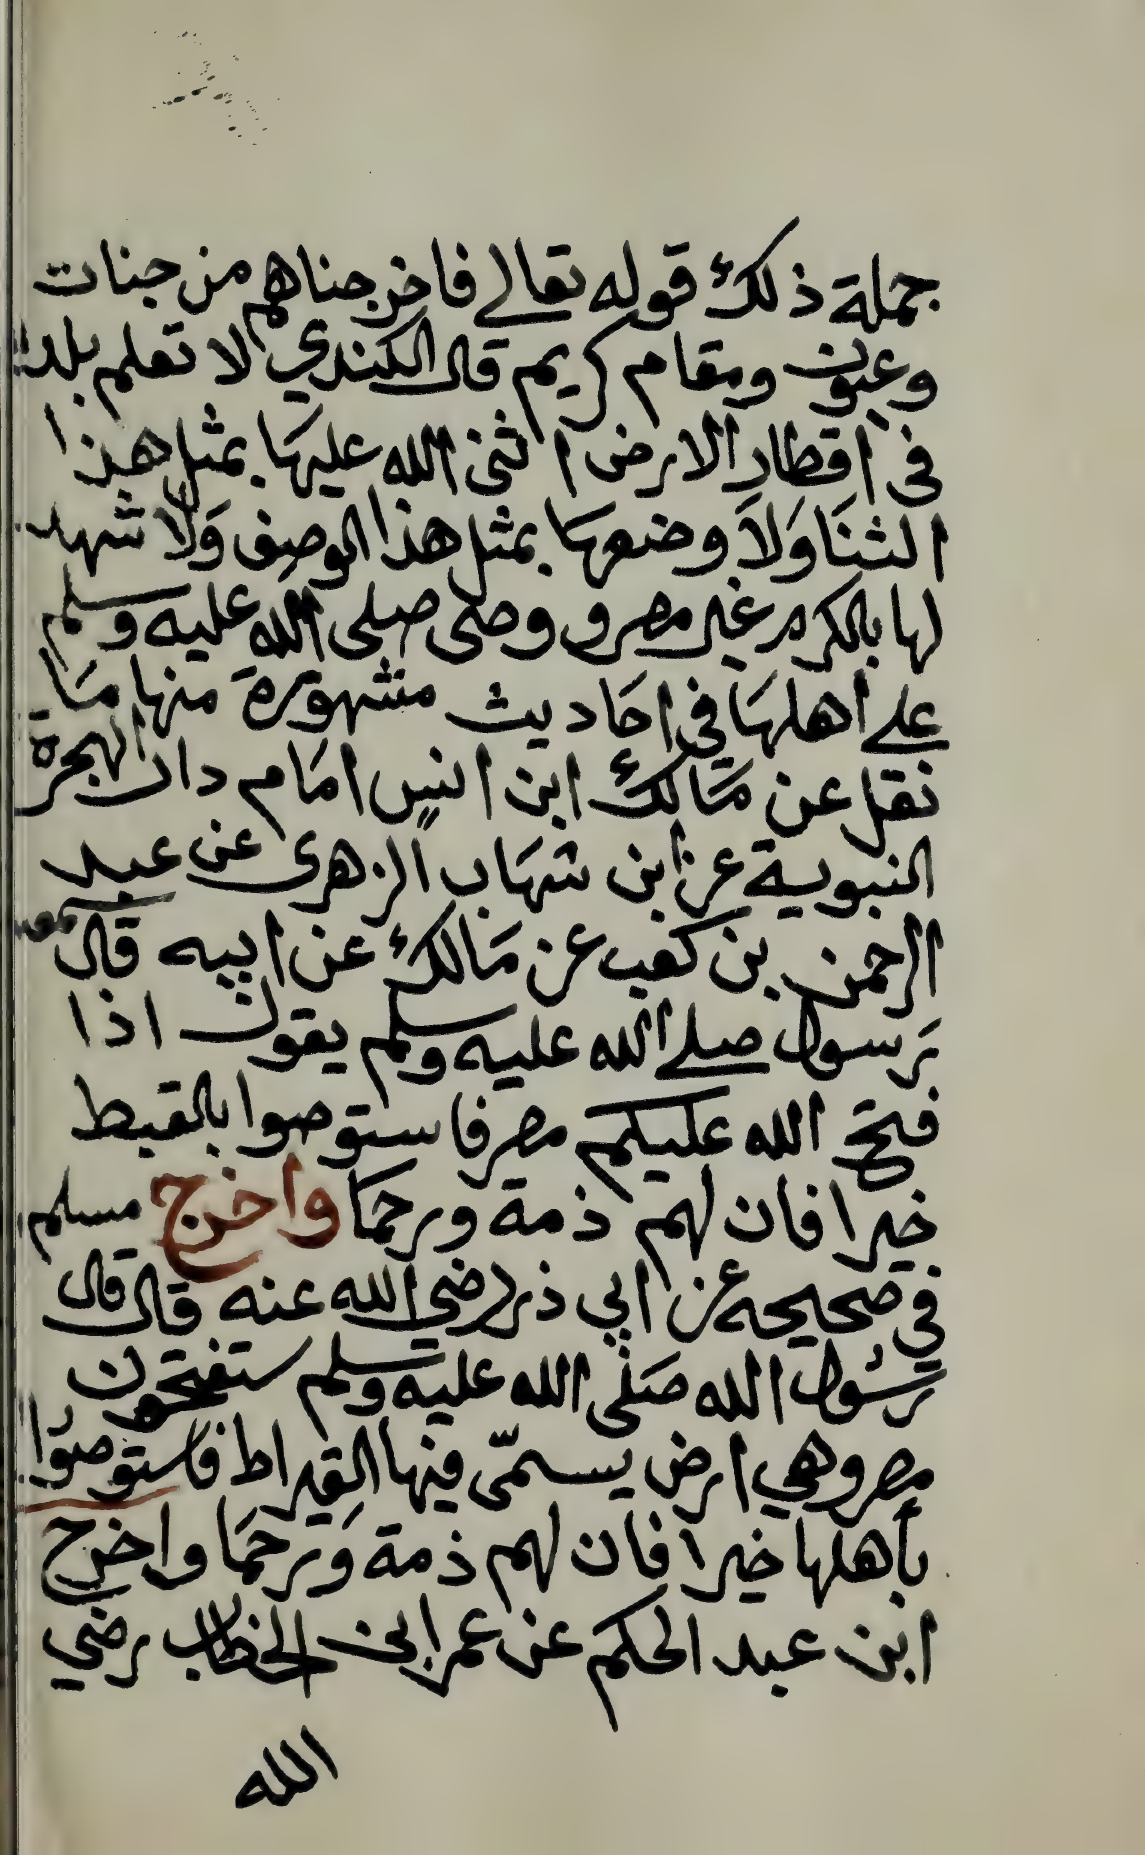 جملة ذلك قوله تعالى فاخرجناهم من جنات
وعيون ومقام كريم قال الكندي لا تعلم بلد
في اقطار الارض اثنى الله عليها بمثل هذا
الثنا ولا وضعها بمثل هذا الوصف ولا شهد
لها بالكرم غير مصر و وصى صلى الله عليه وسلم
على اهلها في احاديث مشهورة منها ما
نقل عن مالك ابن انس امام دار الهجرة
النبوية عن ابن شهاب الزهرى عن عبد
الرحمن بن كعب عن مالك عن ابيه قال
رسول صلى الله عليه وسلم يقول اذا
فتح الله عليكم مصر فاستوصوا بالقبط
خيرا فان لهم ذمة ورحما واخرج مسلم
في صحيحه عن ابي ذر رضي الله عنه قال قال
رسول الله صلى الله عليه وسلم ستفتحون
مصر وهي ارض يسمّى فيها القيراط فاستوصوا
بأهلها خيرا فان لهم ذمة ورحما واخرج
ابن عبد الحكم عن عمر ابن الخطاب رضي
الله